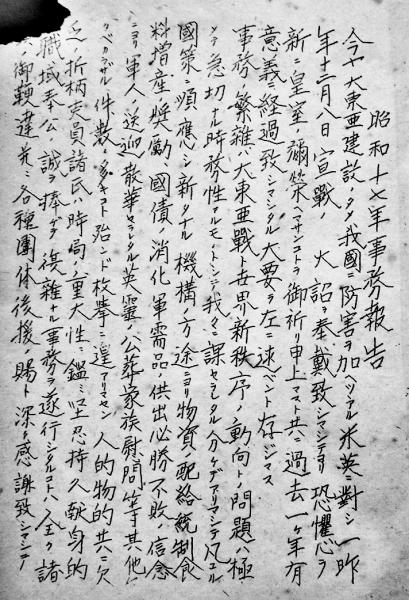 昭和十七年事務報告
今ヤ大東亜建設ノタメ我國ニ防害ヲ加ヘツツアル米英ニ對シ一昨
年十二月八日宣戰ノ大詔ヲ奉戴致シマシテヨリ恐懼心ヲ
新ニ皇室ノ彌栄ヘマサンコトヲ御祈リ申上マスト共ニ過去一ケ年有
意義ニ経過致シマシタル大要ヲ左ニ述ベント存ジマス
事務ノ繁雑ハ大東亜戰ト世界新秩序ノ動向トノ問題ハ極
メテ急切ナ時務性アルモノトシテ我々ニ課セラレタル分ケデアリマシテ凡ユル
國策ニ順應シ新タナル機構ノ方途ニヨリ物資ノ配給統制食
料増産ノ奨勵國債ノ消化軍需品供出必勝不敗ノ信念
ニヨリ軍人ノ送迎散華セラレタル英霊ノ公葬家族慰問等其他
クベカラザル件数ノ多キコト殆ンド枚挙ニ遑アリマセン人的物的共ニ欠
乏ノ折柄吏員諸氏ハ時局ノ重大性ニ鑑ミ堅忍持久献身的
職域奉公ノ誠ヲ捧ゲテ複雑ナル事務ヲ遂行シタルコトハ全ク諸
御鞭達並ニ各種團体後援ノ賜ト深ク感謝致シマシテ